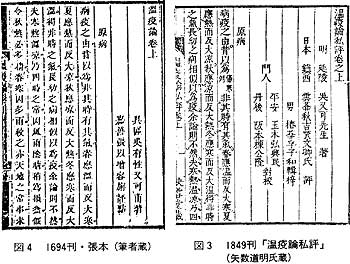 溫疫論私評卷之上
明 延陵 吳又可先生 著
日本 鎭西 雲菴秋吉質文卿氏 評
門人
平安
丹後 阪本棟公隆
原病
病疫之由昔以為非其時有其氣春應溫而反大寒夏
應熱而反大涼秋應涼而反大熱冬應寒而反大溫得非時
之氣長幼之病相似以為疫余論則不然夫寒熱溫涼乃四
図3 1849刊「温疫論私評」
(矢数道明氏蔵)
溫疫論卷上
具區吳有性又可甫著
原病
病疫之由昔以為非其時有其氣春應溫而反大寒
夏應熱而反大涼秋應涼而反大熱冬應寒而反大
溫得非時之氣長幼之病相似以為疫余論則不然
夫寒熱溫涼乃四時之常因風雨陰晴稍為損益假
令秋熱必多晴春寒因多雨較之亦天地之常事未
図4 1694刊・張本(筆者蔵)